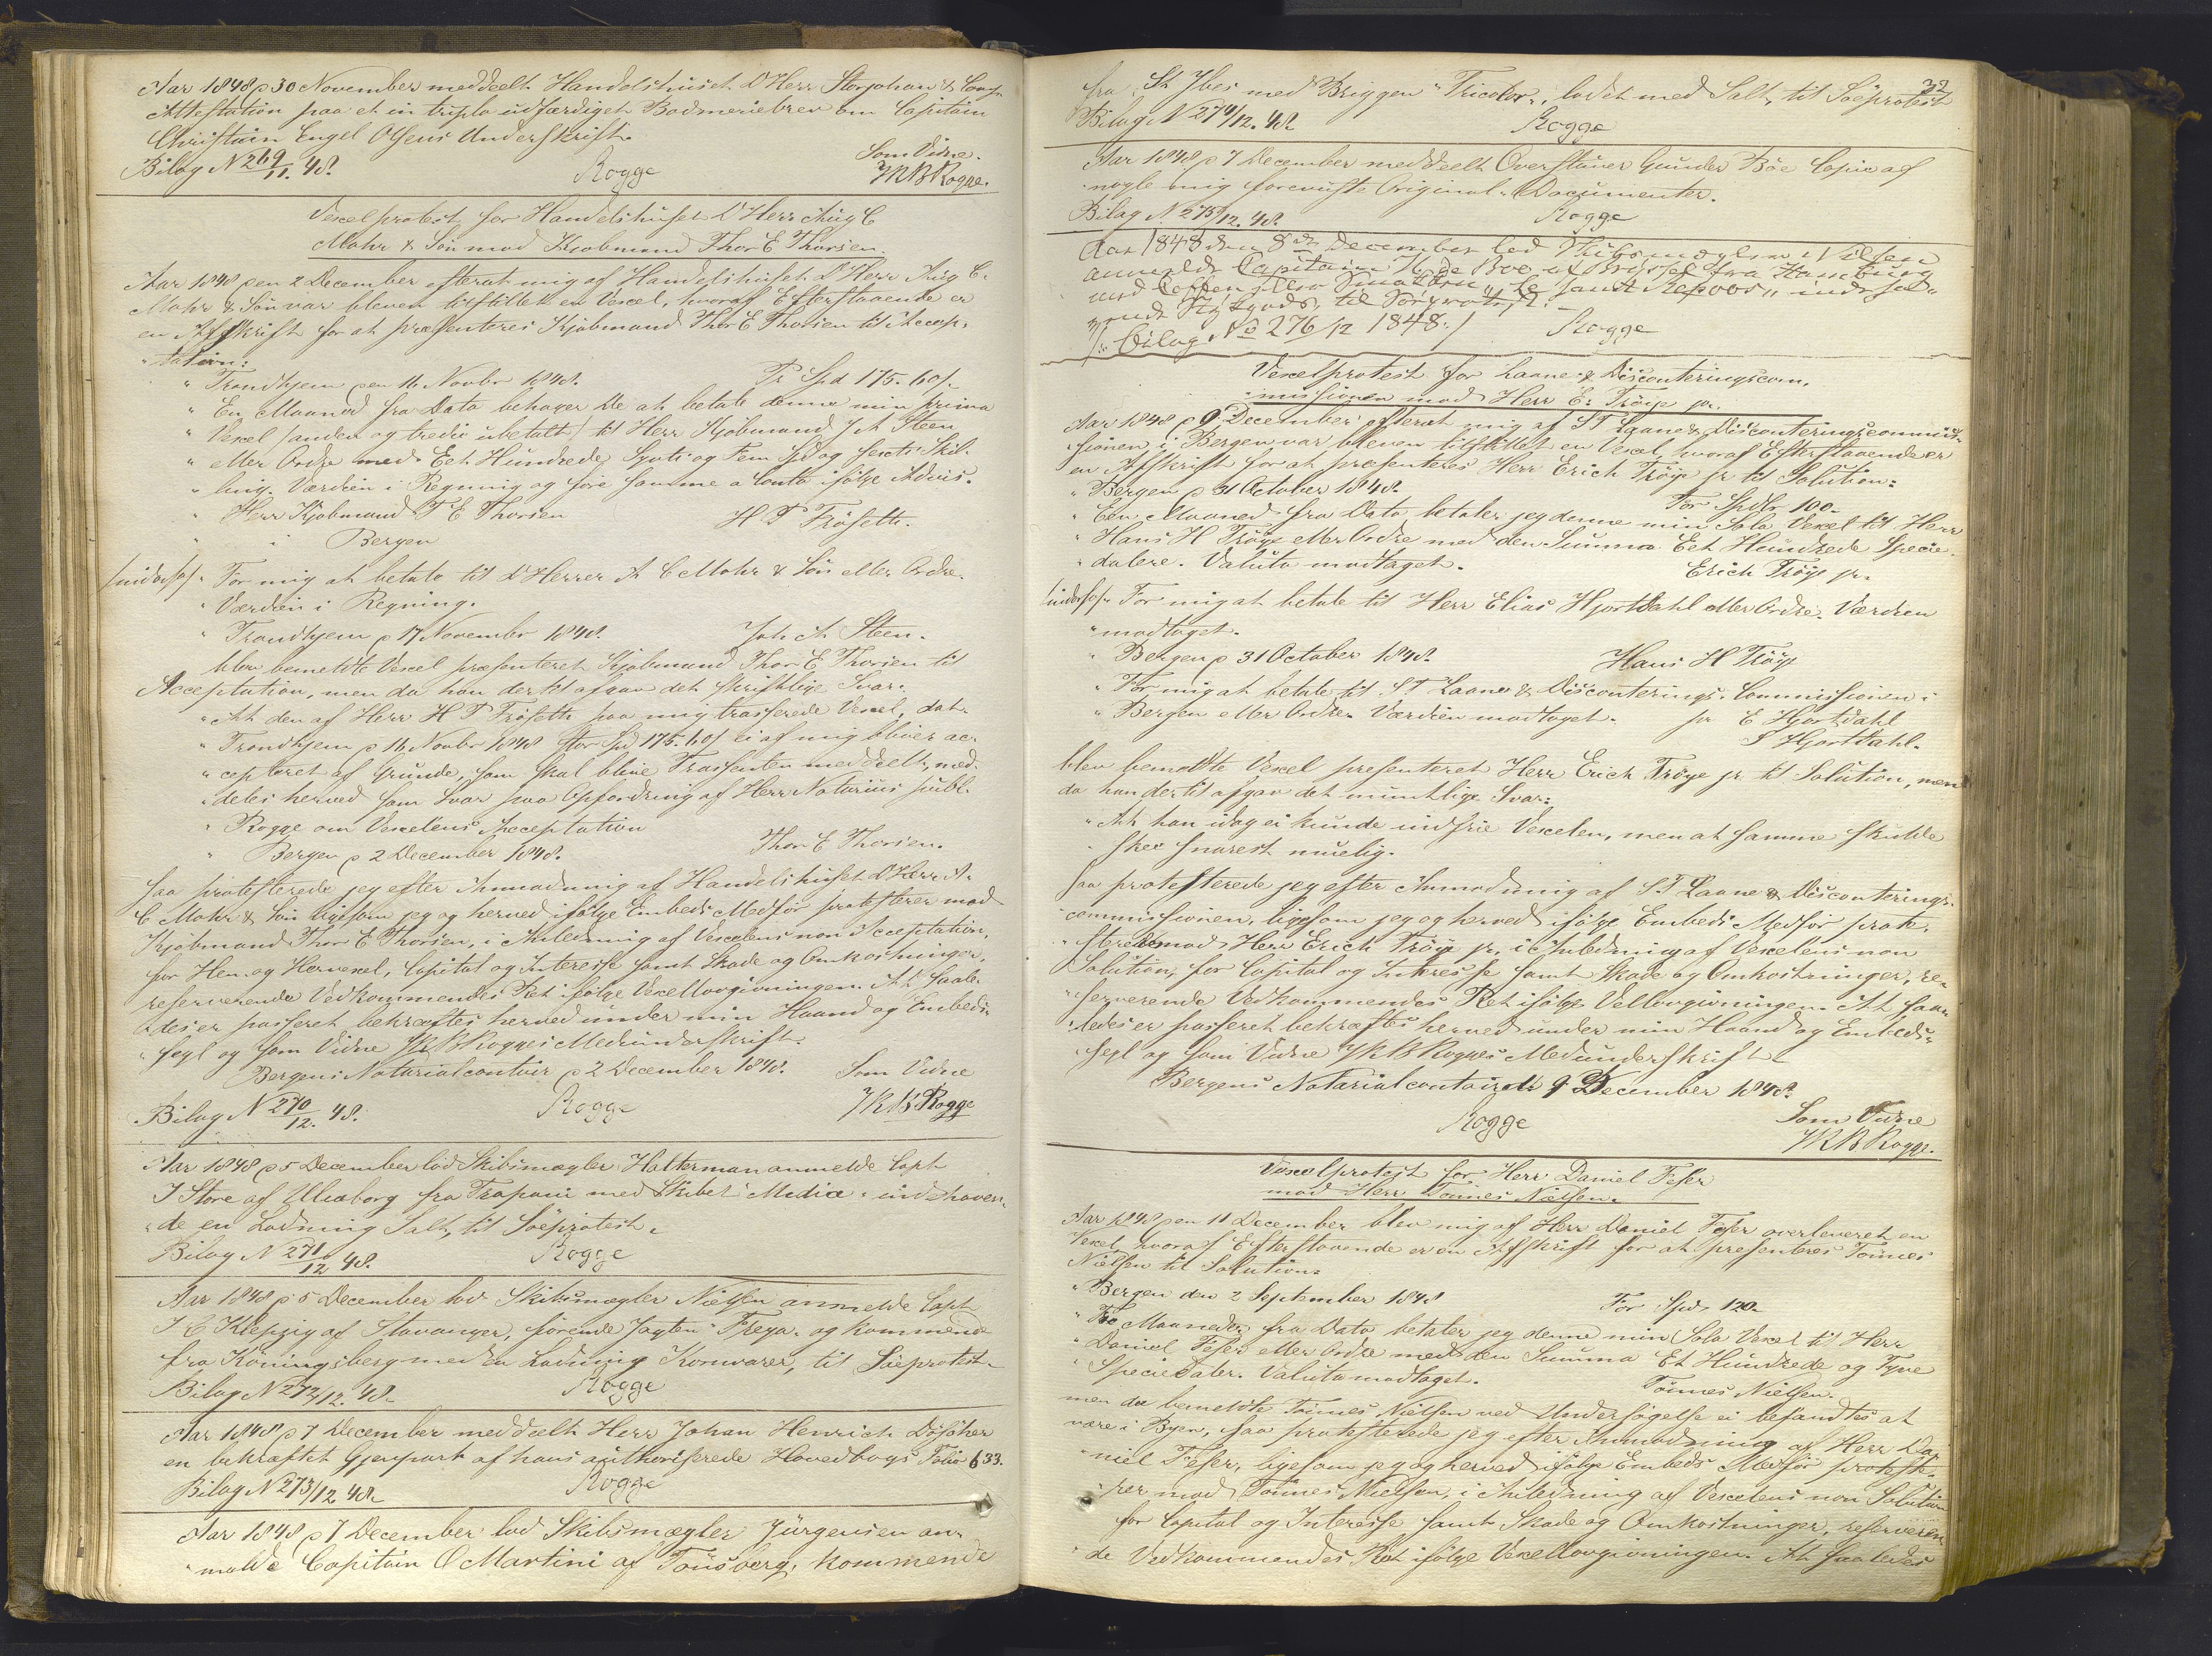 Aar 1848 p 30 November meddeelt Handelshuset D'Herr Storjohan & Comp
Attestation paa et in triplo udfærdiget Bodmeriebrev om Capitain
Christian Engel Olsens Underskrift.
Som Vidne.
Bilag N 269/11. 48. Rogge JRBRogge.
Vexelprotest for Handelshuset D'Herr Aug C
Mohr & Søn mod Kjøbmand Thor E Thorsen
Aar 1848 den 2 December efterat mig af Handelshuset D'Herr Aug C.
Mohr & Søn var bleven tilstillet en Vexel, hvoraf Efterstaaende er
en Afskrift for at præsenteres Kjøbmand Thor E Thorsen til Accep-
"tation:
" Trondhjem den 16 Novbr 1848. Pr Spd 175. 60/-
" En Maaned fra Dato behager De at betale denne min prima
" Vexel /anden og tredie ubetalt/ til Herr Kjøbmand J A Steen
" eller Ordre med Eet Hundrede Sytti og Fem Spd og sexti Skil-
" ling. Værdien i Regning og føre samme a Conto ifølge Advis.
" Herr Kjøbmand T E Thorsen H P Frøseth.
" i Bergen
/indors/ " For mig at betale til D'Herrer A C Mohr & Søn eller Ordre.
" Værdien i Regning.
" Trondhjem p 17 November 1848. Joh A Steen.
blev bemeldte Vexel præsenteret Kjøbmand Thor E Thorsen til
Acceptation, men da han dertil afgav det skriftlige Svar:
" At den af Herr H P Frøseth paa mig trasserede Vexel, dat.
" Trondhjem p 16 Novbr 1848 stor Spd 175. 60/ ei af mig bliver ac-
" cepteret af Grunde, som skal blive Trassenten meddeelt, med-
" deles herved som Svar paa Opfordring af Herr Notarius publ.
" Rogge om Vexelens Acceptation
" Bergen p 2 December 1848. Thor E Thorsen.
saa protesterede jeg efter Anmodning af Handelshuset D'Herr A.
C Mohr & Søn ligesom jeg og herved ifølge Embeds Medfør protesterer mod
Kjøbmand Thor E Thorsen, i Anledning af Vexelens non Acceptation,
for Hen og Hervexel, Capital og Interesse samt Skade og Omkostninger,
reserverende Vedkommendes Ret ifølge Vexellovgivningen. At saale-
"des er passeret bekræftes herved under min Haand og Embeds-
" segl og som Vidne JRBRogges Medunderskrift.
Bergens Notarialcontoir p 2 December 1848. Som Vidne
Bilag N 270/12. 48. Rogge JRBRogge
Aar 1848 p 5 December lod Skibsmægler Halterman anmelde Capt
J Store af Uleaborg fra Trapani med Skibet "Media" indehaven-
"de en Ladning Salt, til Søeprotest.
Bilag N 271/12 48. Rogge
Aar 1848 p 5 December lod Skibsmægler Nielsen anmelde Capt
J C Klepzig af Stavanger, førende Jagten "Freya" og kommende
fra Köningsberg med en Ladning Kornvarer, til Søeprotest.
Bilag N 272/12. 48. Rogge
Aar 1848 p 7 December meddeelt Herr Johan Henrich Döscher
en bekræftet Gjenpart af hans authoriserede Hovedbogs Folio 633.
Bilag N 273/12 48. Rogge
Aar 1848 p 7 December lod Skibsmægler Jürgensen an-
"melde Capitain O Martini af Tønsberg, kommende
32
fra St Ybes med Briggen "Tricolor", ladet med Salt, til Søeprotest
Bilag N 274/12. 48. Rogge
Aar 1848 p 7 December meddeelt Overstuer Gunder Bøe Copie af
nogle mig foreviiste Original-Documenter.
Bilag N 275/12. 48. Rogge
Aar 1848 den 8de December lod Skibsmægler Nielsen
anmelde Capitain de Boe af Brüssel fra Hamburg
med Smakken "Le Repoos" indeha-
vende Stykgods, til Søeprotest.
/: Bilag No 276/12 1848:/ Rogge
Vexelprotest for Laane- & Disconteringscom-
missionen mod Herr E: Trøye jr.
Aar 1848 p 9 December efterat mig af S.T. Laane & Disconteringscommis-
sionen i Bergen var bleven tilstillet en Vexel, hvoraf Efterstaaende er
en Afskrift for at præsenteres Herr Erich Trøye jr til Solution:
" Bergen p 31 October 1848. For Spdlr 100.-
" Een Maaned fra Dato betaler jeg denne min Sola Vexel til Herr
" Hans H Trøye eller Ordre med den Summa Eet Hundrede Specie-
" dalere. Valuta modtaget. Erich Trøye jr.
/indors/ " For mig at betale til Herr Elias Hjortdahl eller Ordre. Værdien
" modtaget.
" Bergen p 31 October 1848. Hans H Trøye
" For mig at betale til S.T. Laane & Disconterings-Commissionen i
" Bergen eller Ordre. Værdien modtaget. pr E Hjortdahl
T Hjortdahl.
blev bemeldte Vexel præsenteret Herr Erich Trøye jr til Solution, men
da han dertil afgav det mundtlige Svar:
" At han idag ei kunde indfrie Vexelen, men at samme skulde
" skee snarest muelig.
saa protesterede jeg efter Anmodning af S.T. Laane & Disconterings-
commissionen, ligesom jeg og herved ifølge Embeds Medfør prote-
"sterer mod Herr Erich Trøye jr, i Anledning af Vexelens non
Solution, for Capital og Interesse samt Skade og Omkostninger, re-
"serverende Vedkommendes Ret ifølge Vexellovgivningen. At saa-
"ledes er passeret bekræftes herved under min Haand og Embeds-
segl og som Vidne JRBRogges Medunderskrift
Bergens Notarialcontoir d. 9 December 1848.
Som Vidne
Rogge JRBRogge.
Vexelprotest for Herr Daniel Feser
mod Herr Tønnes Nielsen.
Aar 1848 den 11 December blev mig af Herr Daniel Feser overleveret en
Vexel, hvoraf Efterstaaende er en Afskrift for at præsenteres Tønnes
Nielsen til Solution:
" Bergen den 2 September 1848 For Spd. 120.
" Tre Maaneder fra Dato betaler jeg denne min Sola Vexel til Herr
" Daniel Feser eller Ordre med den Summa Et Hundrede og Tyve
" Speciedaler. Valuta modtaget. Tønnes Nielsen.
men da bemeldte Tønnes Nielsen ved Undersøgelse ei befandtes at
være i Byen, saa protesterede jeg efter Anmodning af Herr Da-
"niel Feser, ligesom jeg og herved ifølge Embeds Medfør proteste-
"rer mod Tønnes Nielsen, i Anledning af Vexelens non Solution
for Capital og Interesse samt Skade og Omkostninger, reserveren-
"de Vedkommendes Ret ifølge Vexellovgivningen. At saaledes